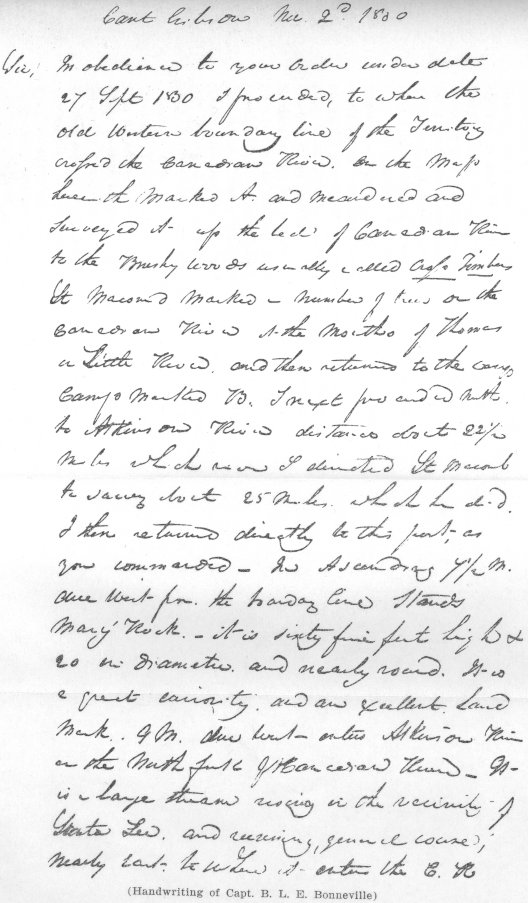 Cant Gibson Nov. 2d. 1830
Sir, In obedience to your Order under date
27 Sept 1830 I proceeded, to where the
old Western boundary line of the Territory
crossed the Canadian River. On the Map
herewith Marked A. and meandered and
surveyed it up the bed of Canadian River
to the Brushy Woods usually called Cross Timbers
Lt Macomb Marked a number of trees on the
Canadian River at the Mouths of Thomas
or Little River. and then returned to the
Camp Marked B. I next proceeded North.
to Atkinson River distance abot 22 1/2
miles which river I directed Lt Macomb
to survey abot 25 miles. which he did.
I then returned directly to this post, as
you commanded — In Ascending 7 1/2 M.
due West from the boundary line Stands
Mary's Rock. — it is sixty five feet high &
20 in diameter. and nearly round. It is
a great curiosity. and an excellent Land
Mark. 9 M. due West — enters Atkinson River
or the North fork of Canadian River — It
is a large stream rising in the vicinity of
Santa Fee. and running, general course,
nearly East. to where it enters the C. R
(Handwriting of Capt. B. L. E. Bonneville)